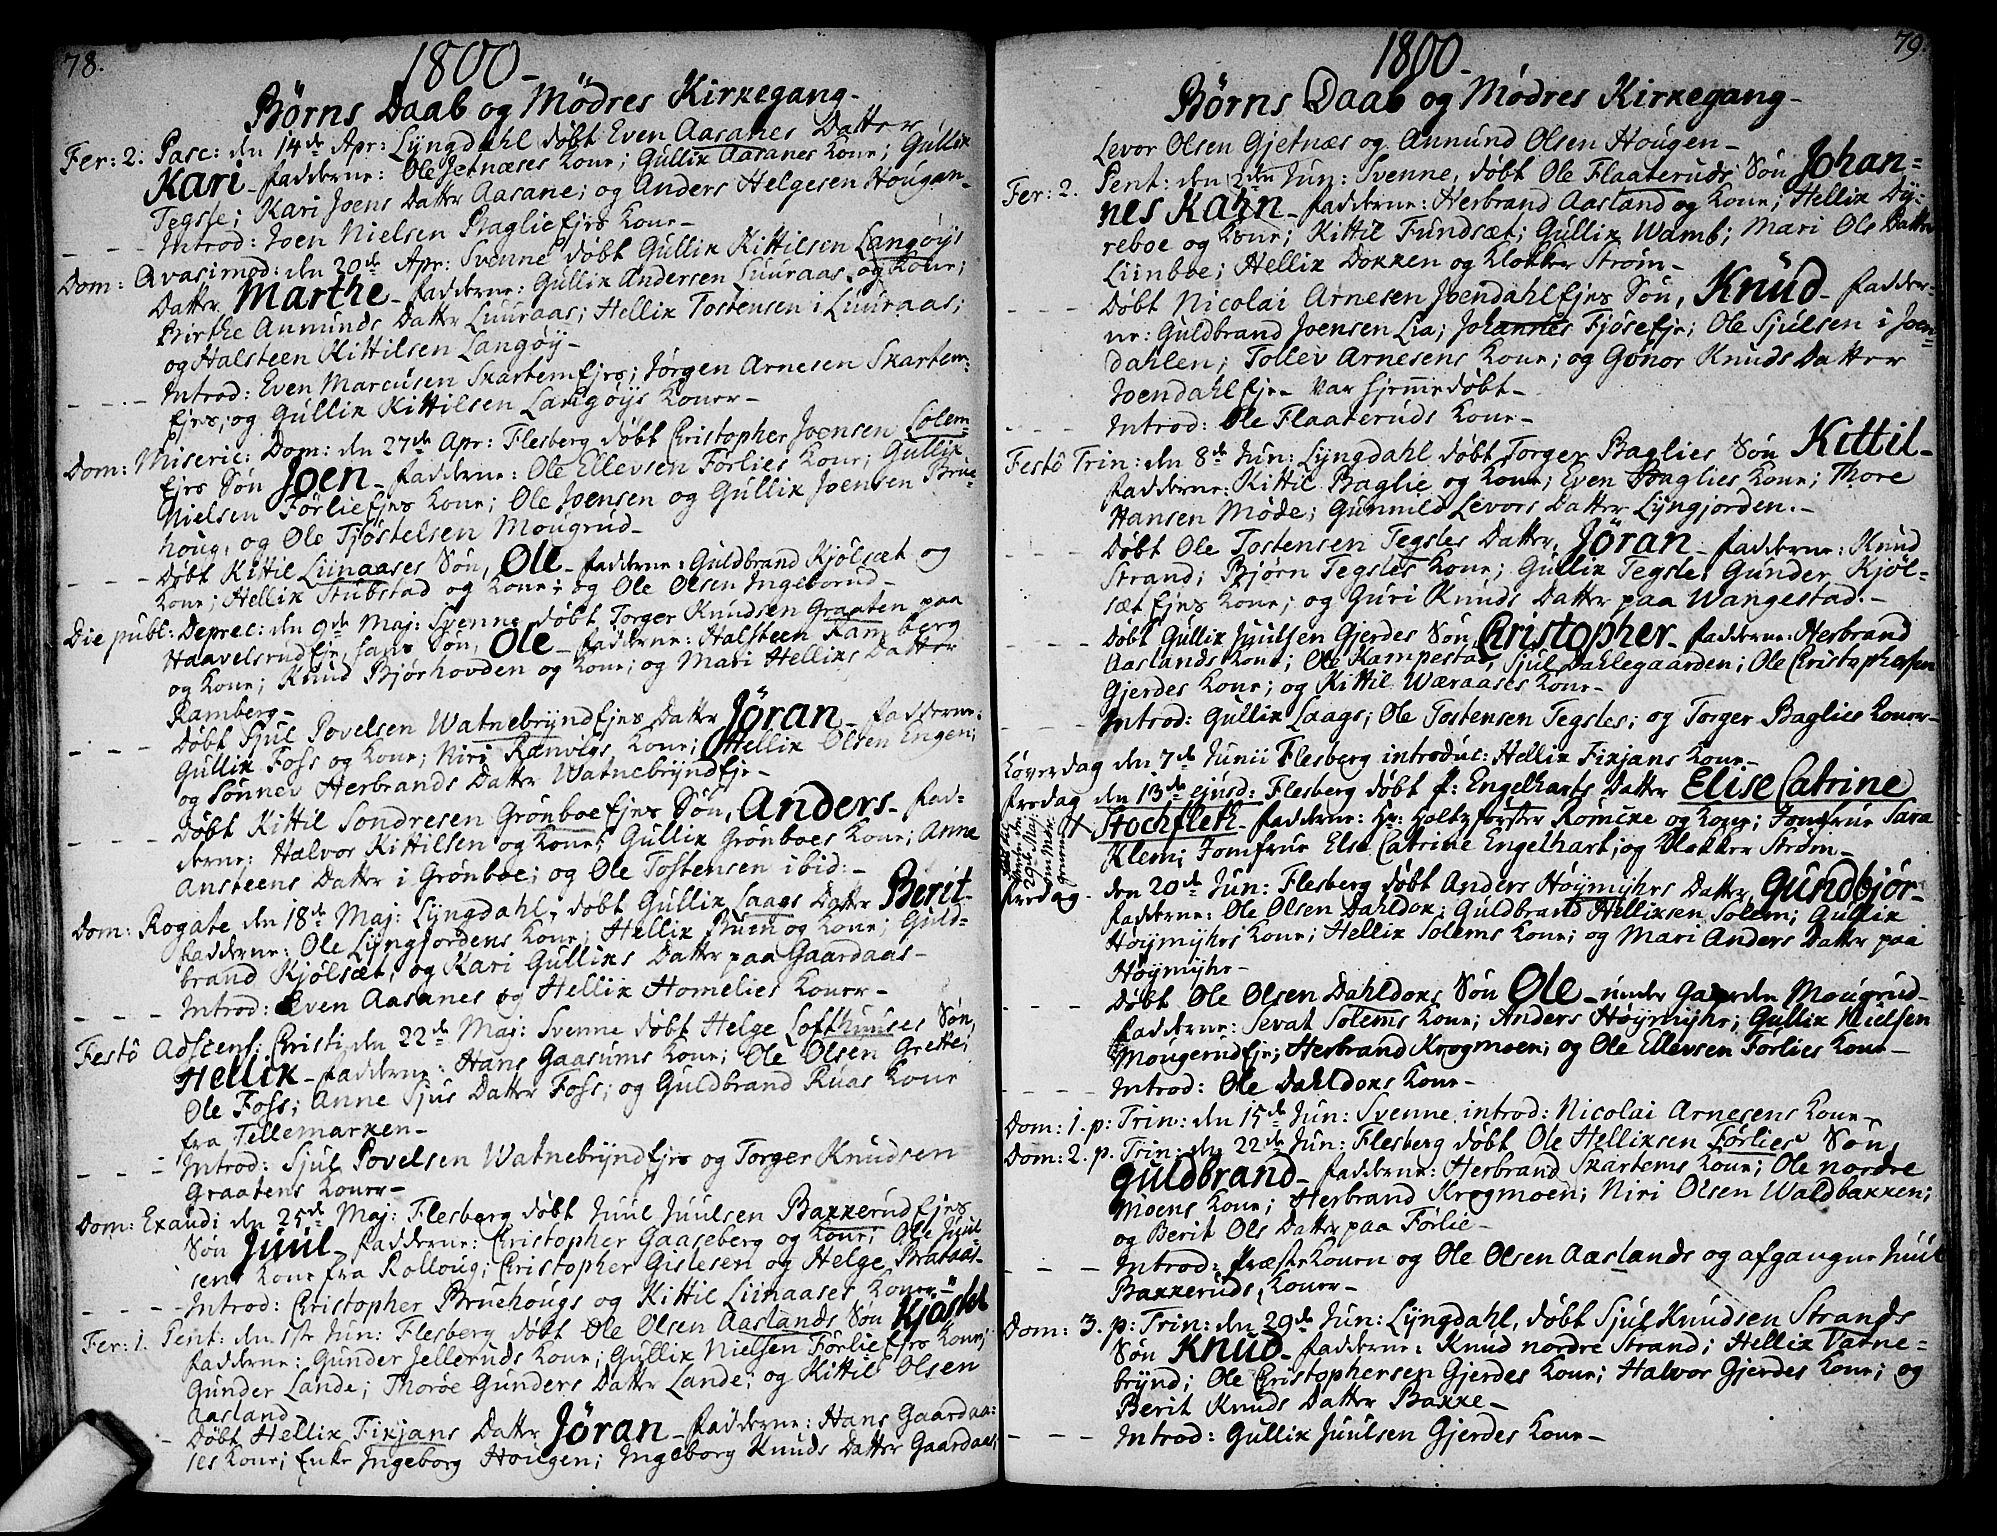 78.
1800-
Børns Daab og Mødres Kirkegang-
Fer: 2. Pasc: den 14de Apr: Lyngdahl døbt Even Aasanes Datter
Kari- fadderne: Ole Jetnæses Kone; Gullik Aasanes Kone; Gullik
Tegsle; Kari Joens Datter Aasane; og Anders Helgesen Hougan-
- - Introd: Joen Nielsen Baglie Ejes Kone-
Dom: Qvasimod: den 20de Apr: Svenne døbt Gullik Kittilsen Langøÿs
Datter Marthe- fadderne: Gullik Andersen Luuraas og Kone;
Birthe Anmunds Datter Luuraas; Hellik Tostensen i Luuraas;
og Halsteen Kittilsen Langøÿ-
- - - Introd: Even Marcusen Skartem Ejes; Jørgen Arnesen Skartem-
Ejes, og Gullik Kittilsen Langøÿs Koner-
Dom: Miseric: Dom: den 27de Apr: Flesberg døbt Christopher Joensen Solem-
Ejes Søn Joen- fadderne: Ole Ellevsen Førlies Kone; Gullik
Nielsen Førlie Ejes Kone; Ole Joensen og Gullik Joensen Brue-
houg, og Ole Tjøstelsen Mougrud-
- - - Døbt Kittil Liinaases Søn, Ole- fadderne: Guldbrand Kjølsæt og
Kone; Hellik Stubstad og Kone; og Ole Olsen Ingeborud-
Die publ: Deprec: den 9de Maj: Svenne døbt Torger Knudsen Graaten paa
Haavelsrud Eje, hans Søn, Ole- fadderne: Halsteen Ramberg
og Kone; Knud Bjørhovden og Kone; og Mari Helliks Datter
Ramberg-
- - - Døbt Sjul Povelsen Watnebrÿnd Ejes Datter Jöran- fadderne:
Gullik Foss og Kone; Niri Ranvigs Kone; Hellik Olsen Engen;
og Sønnev Herbrands Datter Watnebrÿnd Eje-
- - - Døbt Kittil Sondresen Grønboe Ejes Søn, Anders- fad-
derne: Halvor Kittilsen og Kone; Gullik Grønboes Kone; Anne
Ansteens Datter i Grønboe; og Ole Tostensen ibid:-
Dom: Rogate, den 18de Maj: Lyngdahl, døbt Gullik Laags Datter Berit-
fadderne: Ole Lÿngjordens Kone; Hellik Buin og Kone; Guld-
brand Kjølsæt, og Kari Gulliks Datter paa Gaardaas-
- - - Introd: Even Aasanes og Hellik Homelies Koner-
Festô Adscens: Christi, den 22de Maj: Svenne døbt Helge Lofthuuses Søn,
Hellik- fadderne: Hans Gaasums Kone; Ole Olsen Grette;
Ole Foss; Anne Sjus Datter Foss; og Guldbrand Ruas Kone
fra Tellemarken-
- - - Introd: Sjul Povelsen Watnebrÿnd Ejes og Torger Knudsen
Graatens Koner-
Dom: Exaudi den 25de Maj: Flesberg døbt Juul Juulsen Bakkerud Ejes
Søn Juul- fadderne: Christopher Gaaseberg og Kone; Ole Juul-
sens Kone fra Rolloug; Christopher Gislesen og Helge Brataas-
- - - Introd: Christopher Bruehougs og Kittil Liinaases Koner-
Fer: 1. Pent: den 1ste Jun: Flesberg døbt Ole Olsen Aaslands Søn Kjöstel
fadderne: Gunder Jelleruds Kone; Gullik Nielsen Førlie Ejes Kone;
Gunder Lande; Thorøe Gunders Datter Lande; og Kittil Olsen
Aasland
- Døbt Hellik Fixjans Datter Jöran- fadderne: Hans Gaardaa-
ses Kone; Enke Ingeborg Hougen; Ingeborg Knuds Datter Gaardaas;
79.
1800-
Børns Daab og Mødres Kirkegang-
Levor Olsen Gjetnæs og Anmund Olsen Hougen-
Fer: 2. Pent: den 2den Jun: Svenne, døbt Ole Flaateruds Søn Johan-
nes Kahn- fadderne: Herbrand Aasland og Kone; Hellik Dÿ-
reboe og Kone; Kittil Fundsæt; Gullik Wamb; Mari Ols Datter
Liinboe; Hellik Dokken og Klokker Strøm-
- - - Døbt Nicolai Arnesen Joendahl Ejes Søn, Knud- fadder-
ne: Guldbrand Joensen Lia; Johannes Fjøse Eje; Ole Sjulsen i Joen-
dahlen; Tollev Arnesens Kone; og Gunor Knuds Datter
Joendahl Eje- Var hjemmedøbt-
- - - Introd: Ole Flaateruds Kone-
Festô Trin: den 8de Jun: Lyngdahl døbt Torger Baglies Søn Kittil-
fadderne: Kittil Baglie og Kone; Even Baglies Kone; Thore
Hansen Møde; Gunnild Levors Datter Lÿngjorden.-
- - - Døbt Ole Tostensen Tegsles Datter, Jöran- fadderne: Knud
Strand; Bjørn Tegsles Kone; Gullik Tegsle; Gunder Kjøl-
sæt Ejes Kone; og Guri Knuds Datter paa Wangestad.-
- - - Døbt Gullik Juulsen Gjerdes Søn Christopher- fadderne: Herbrand
Aaslands Kone; Ole Kampestad, Sjul Dahlegaarden; Ole Christophersen
Gjerdes Kone; og Kittil Wæraases Kone-
- - - Introd: Gullik Laags; Ole Tostensen Tegsles; og Torger Baglies Koner-
Løverdag den 7de Junii Flesberg introduc: Hellik Fixjans Kone-
Fredag den 13de ejusd: Flesberg døbt f: Engelharts Datter Elise Catrine
Stochfleth- fadderne: Hr: Holtzførster Römcke og Kone; Jomfrue Sara
Klem; Jomfrue Else Catrine Engelhart, og Klokker Strøm-
Fredag- den 20de Jun: Flesberg døbt Anders Høÿmÿhrs Datter Gundbjør-
fadderne: Ole Olsen Dahldok; Guldbrand Helliksen Solem; Gullik
Høÿmÿhrs Kone; Hellik Solems Kone; og Mari Anders Datter paa
Høÿmÿhr-
- - - Døbt Ole Olsen Dahldoks Søn Ole- under Gaarden Mougrud-
fadderne: Sevat Solems Kone; Anders Høÿmÿhr; Gullik Nielsen
Mougerud Eje; Herbrand Krogmoen; og Ole Ellevsen Førlies Kone-
- - - Introd: Ole Dahldoks Kone-
Dom: 1. p: Trin: den 15de Jun: Svenne introd: Nicolai Arnesens Kone-
Dom: 2. p. Trin: den 22de Jun: Flesberg døbt Ole Helliksen Førlies Søn,
Guldbrand- fadderne: Herbrand Skartems Kone; Ole nordre
Moens Kone; Herbrand Krogmoen; Niri Olsen Waldbakken;
og Berit Ols Datter paa Førlie-
- - - Introd: Præste Konen og Ole Olsen Aaslands og afgangne Juul
Bakkeruds, Koner-
Dom: 3. p: Trin: den 29de Jun: Lÿngdahl, døbt Sjul Knudsen Strands
Søn Knud- fadderne: Knud nordre Strand; Hellik Vatne-
brÿnd; Ole Christophersen Gjerdes Kone; Halvor Gjerdes Kone; og
Berit Knuds Datter Bakke-
- - - Introd: Gullik Juulsen Gjerdes Kone-